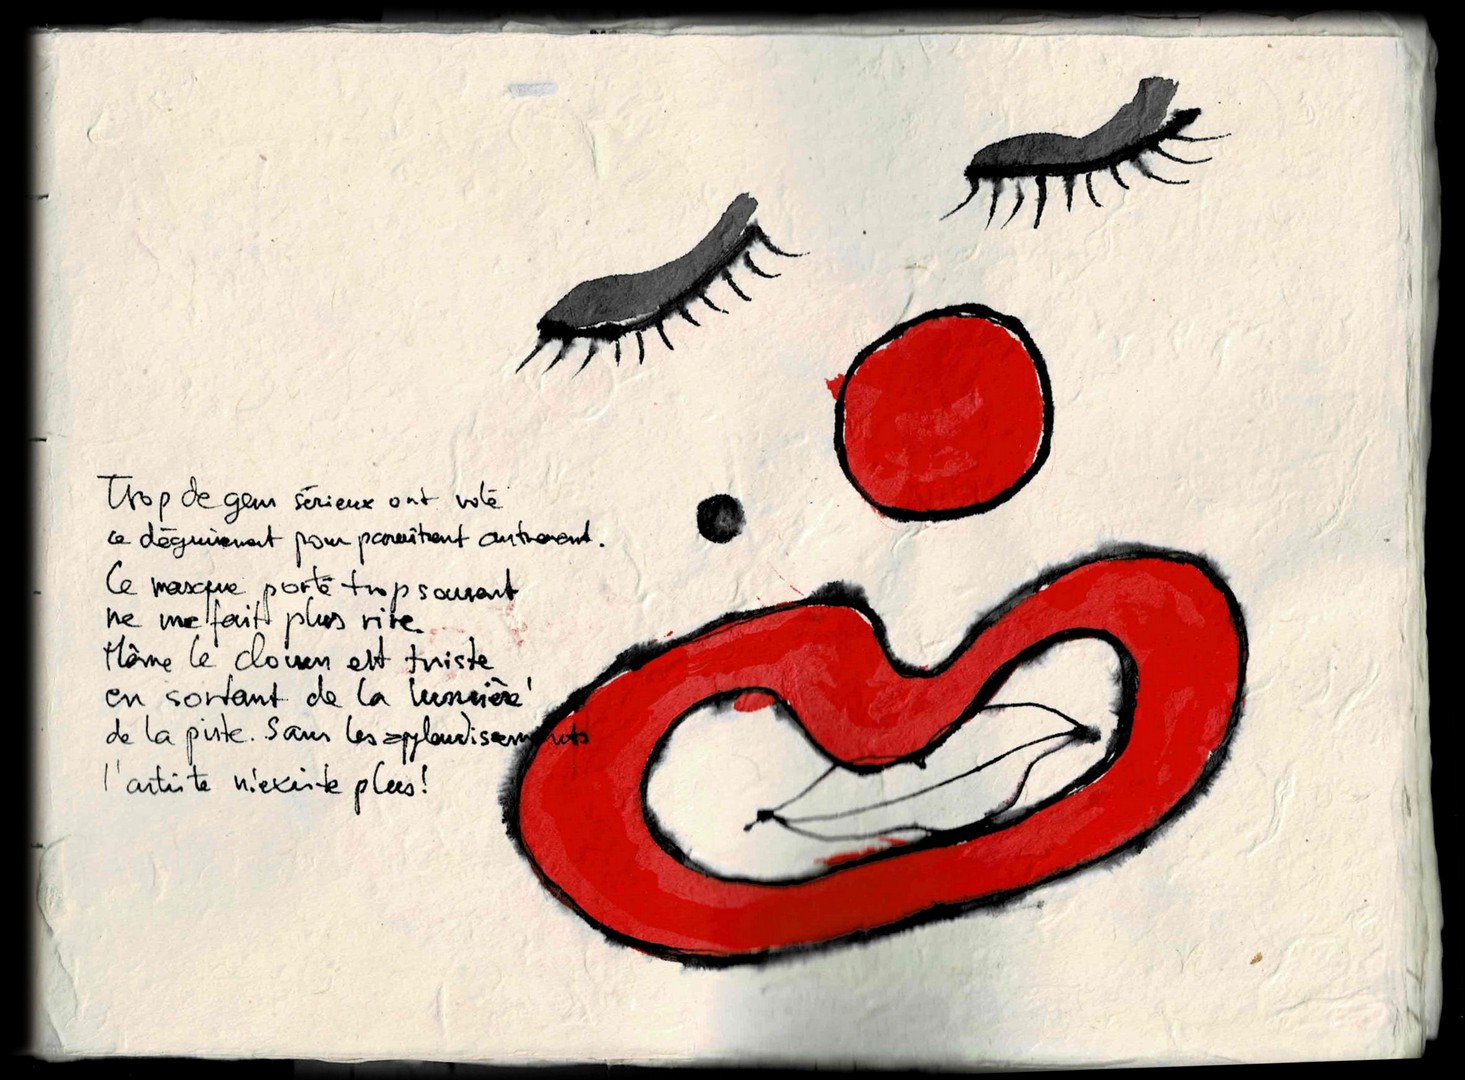 Trop de gens sérieux ont volé
ce déguisement pour paraîtrent autrement.
Ce masque porté trop souvent
ne me fait plus rire.
Même le clown est triste
en sortant de la lumière
de la piste. Sans les applaudissements
l'artiste n'existe plus!